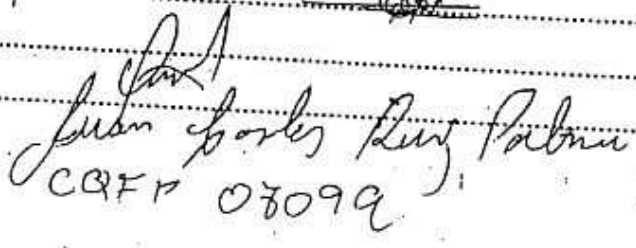 Juan Carlos Ruiz
CQFP 07099